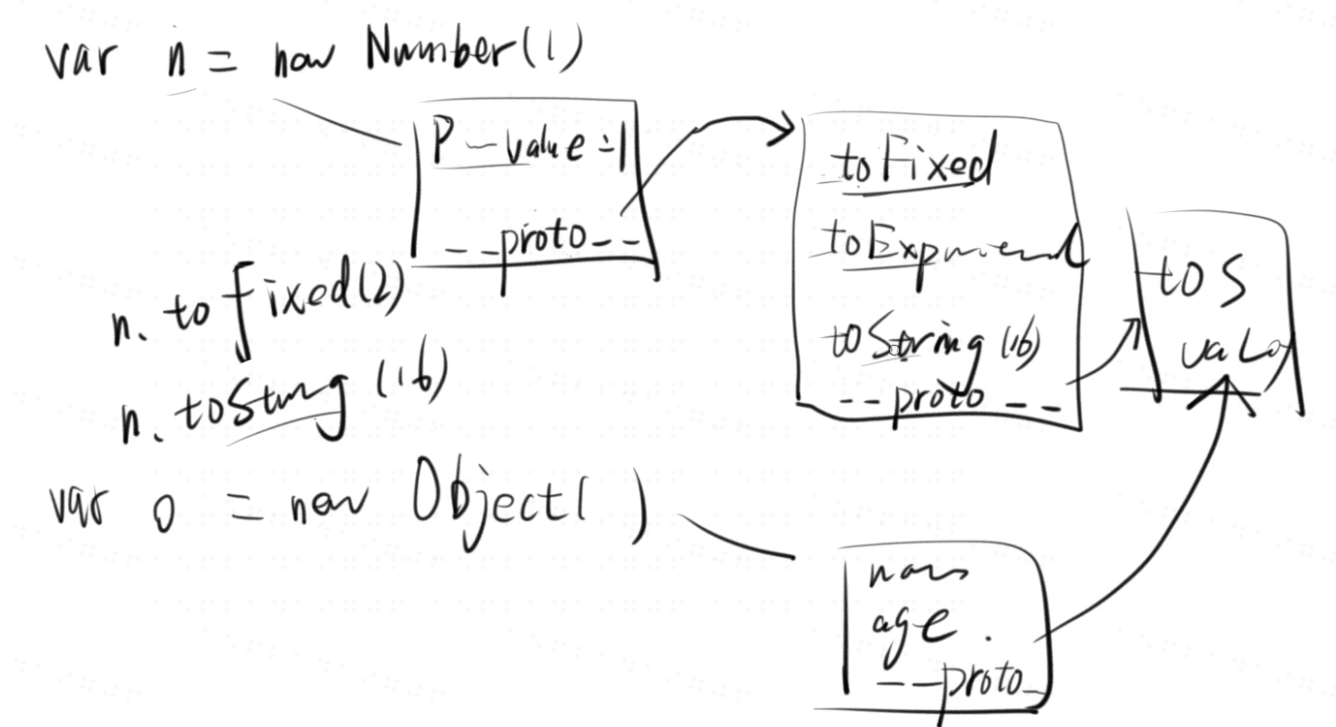 var n = new Number(1)
P - value = 1
__proto__
toFixed
toExponential
toString(16)
__proto__
toS
n. toFixed(2)
n. toString(16)
var o = new Object( )
age.
__proto_